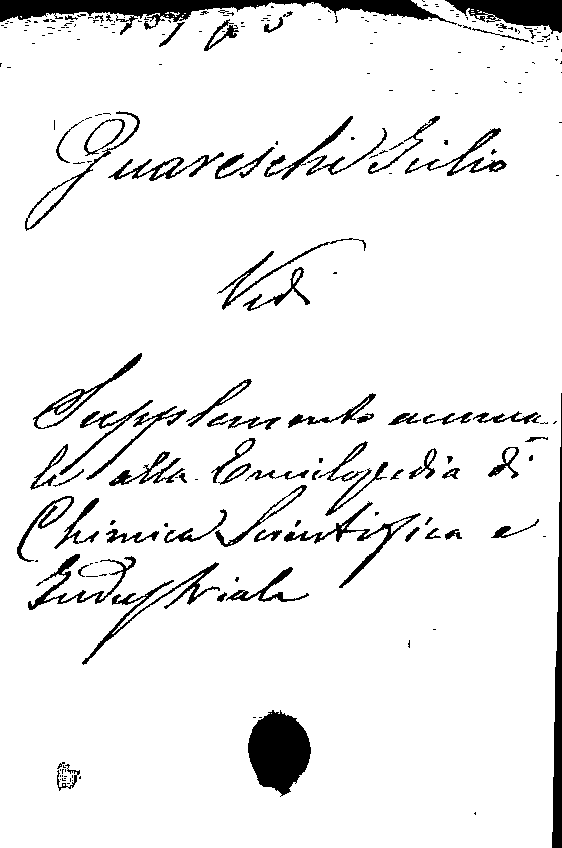 Guareschi Iulio
Vedi
Supplemento annua
le alla Enciclopedia di
Chimica Scientifica e
Industriale